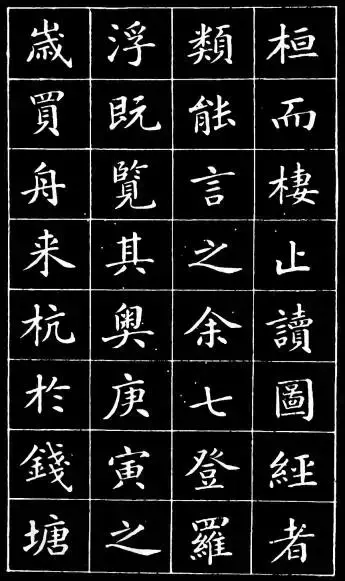 桓而棲止讀圖經者
類能言之余七登羅
浮既覽其奧庚寅之
歲買舟来杭於錢塘